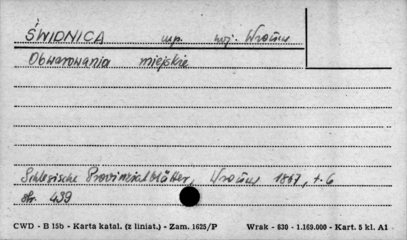 ŚWIDNICA mp. woj. Wrocław
Obwarowania miejskie
Schlesische Provinzialblätter, Wrocław 1867, t. 6
str. 439
CWD - B 15b - Karta katal. (z liniat.) - Zam. 1625/P Wrak - 630 - 1.169.000 - Kart. 5 kl. A1